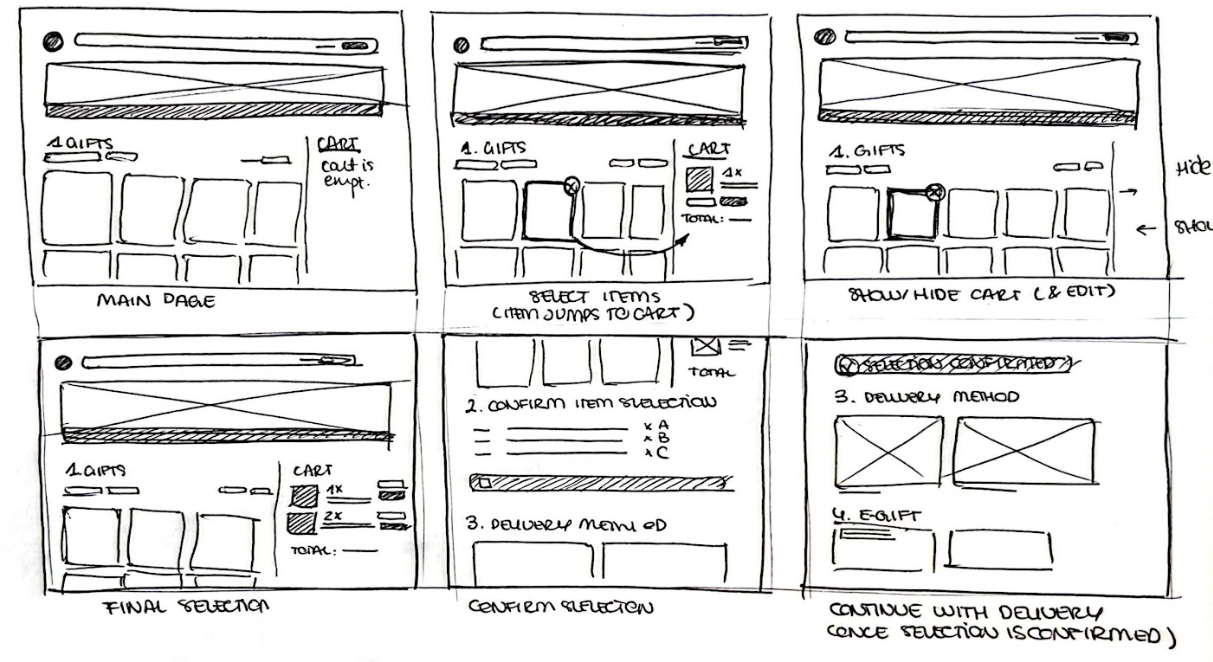 1 GIFTS
CART
cart is
empt.
MAIN PAGE
1. GIFTS
CART
1x
TOTAL:
SELECT ITEMS
(ITEM JUMPS TO CART)
1. GIFTS
HIDE
SHOW/HIDE CART (& EDIT)
1 GIFTS
CART
1x
2x
TOTAL:
FINAL SELECTION
TOTAL
2. CONFIRM ITEM SELECTION
x A
x B
x C
3. DELIVERY METHOD
CONFIRM SELECTION
SELECTION CONFIRMATED
3. DELIVERY METHOD
4. E-GIFT
CONTINUE WITH DELIVERY
(ONCE SELECTION IS CONFIRMED)